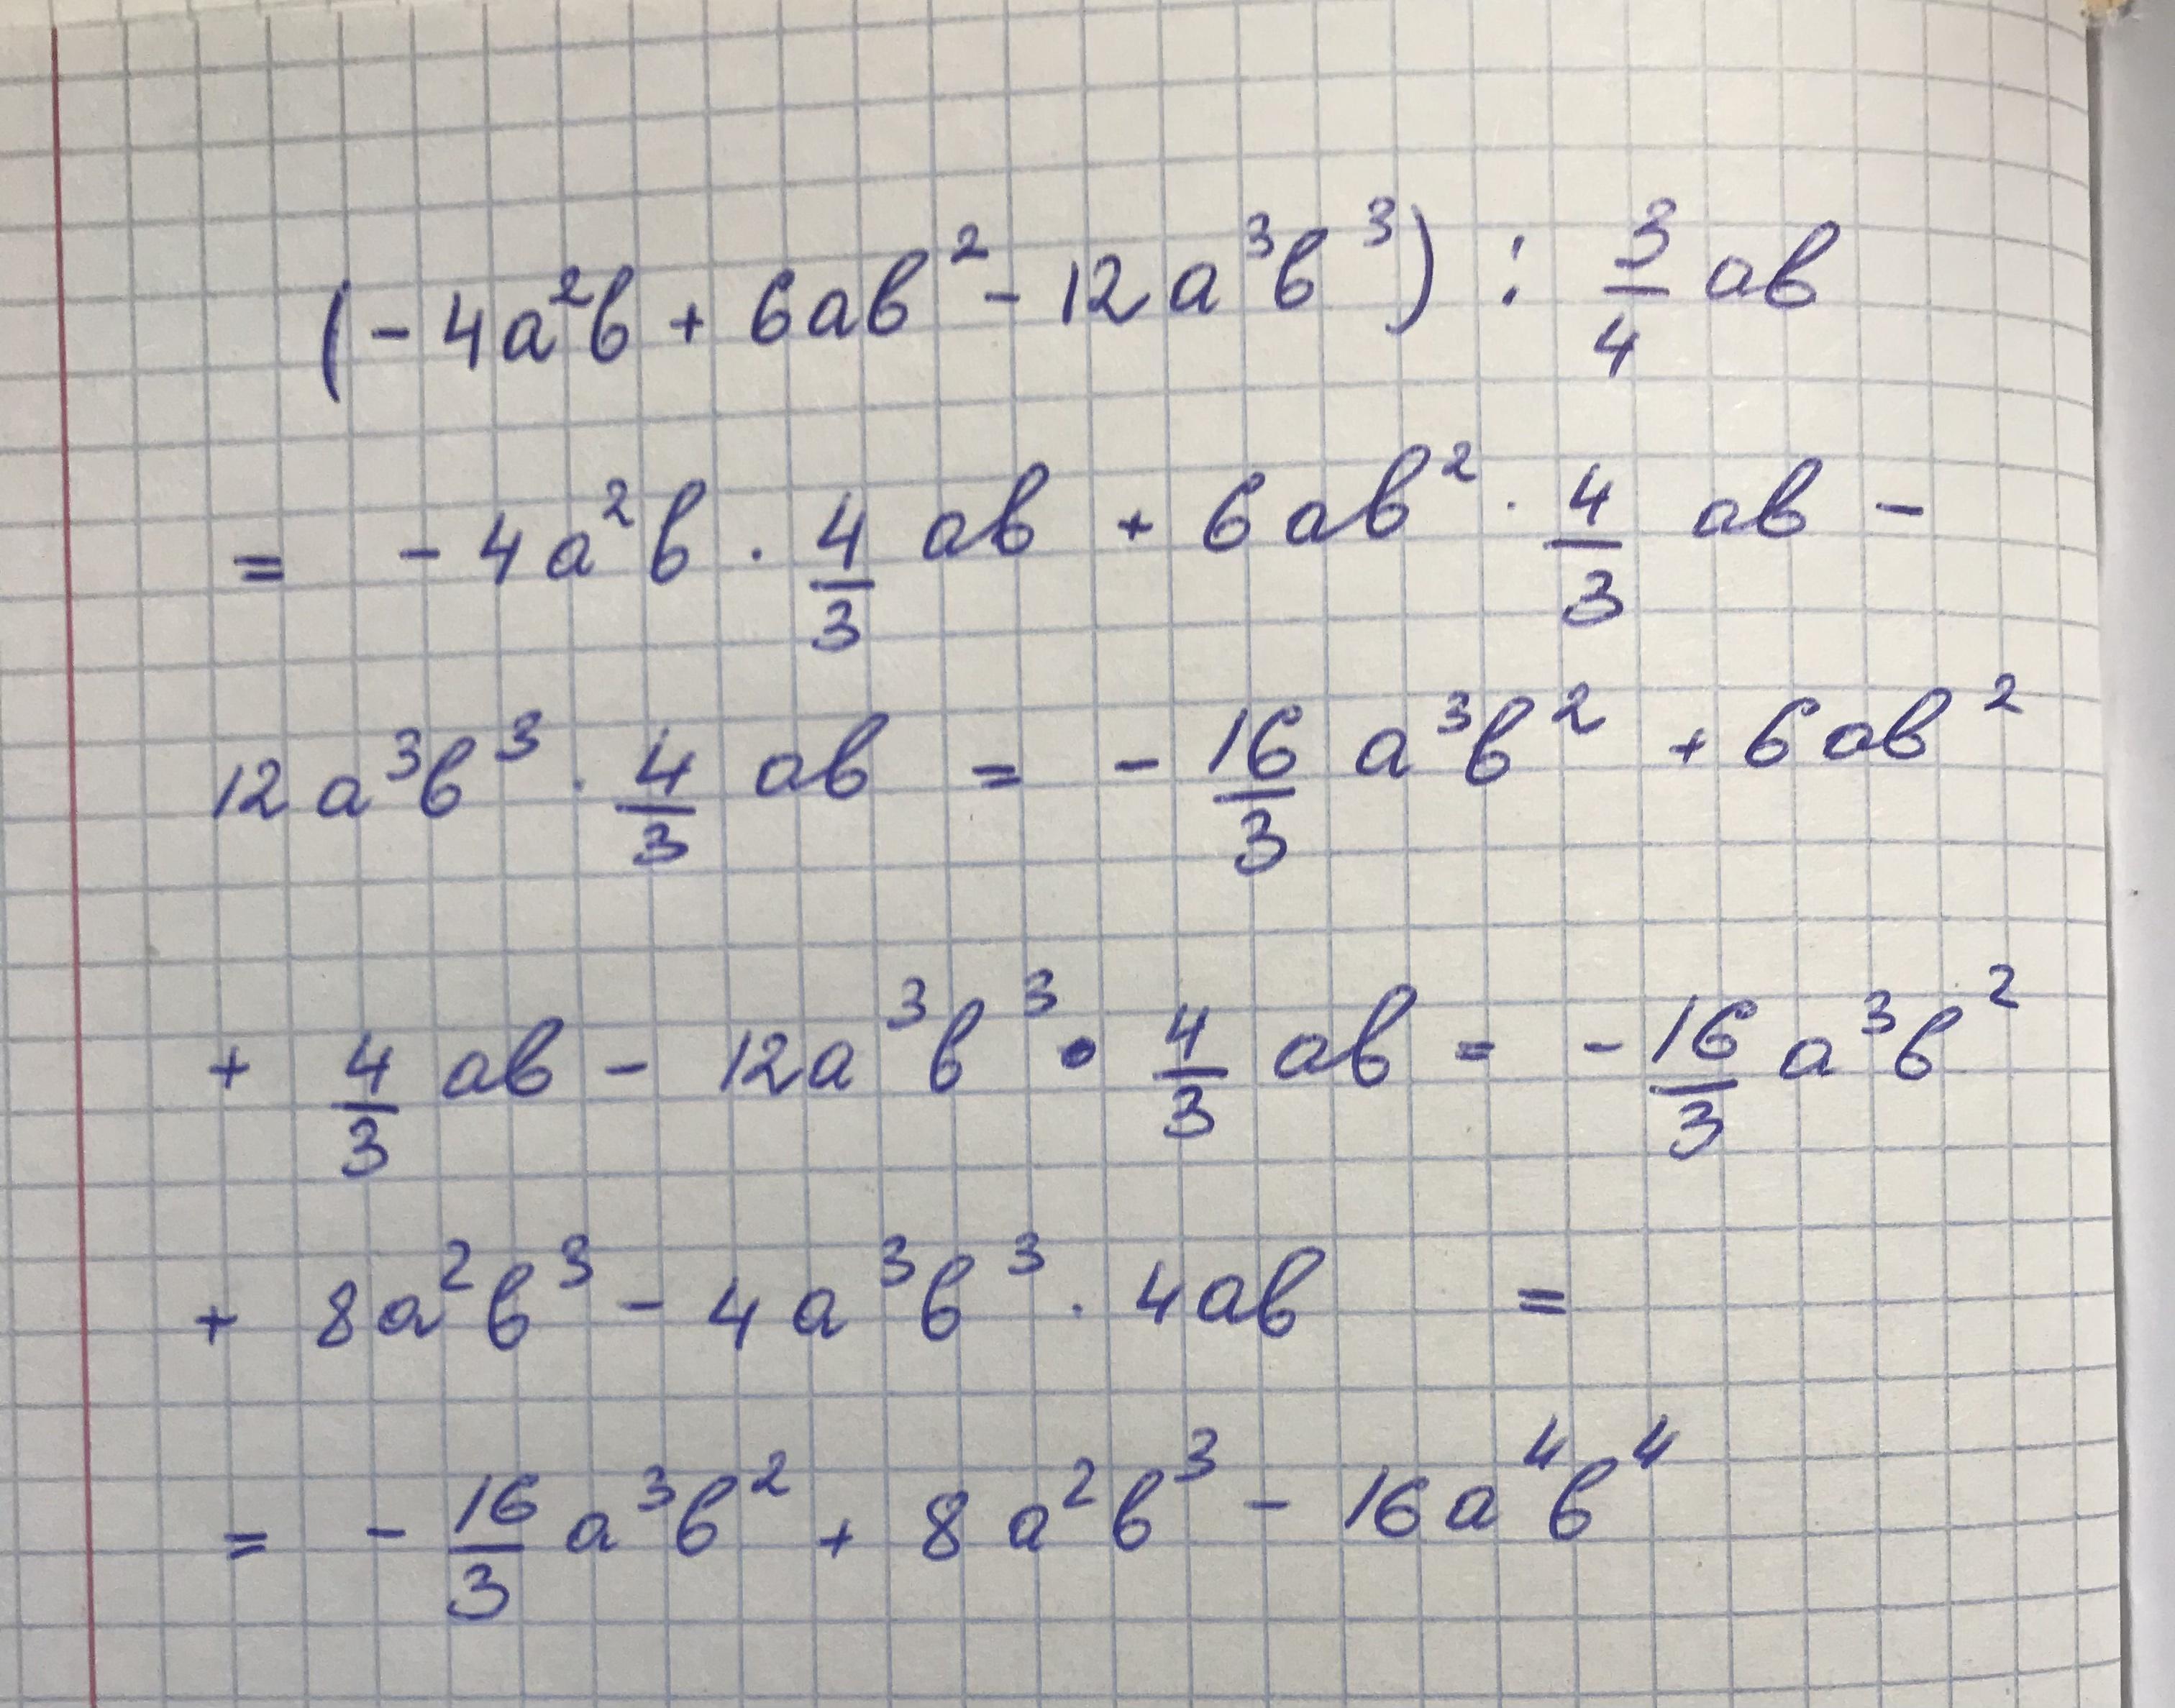 (-4a²b + 6ab² - 12a³b³) : 3/4 ab
= -4a²b · 4/3 ab + 6ab² · 4/3 ab -
12a³b³ · 4/3 ab = - 16/3 a³b² + 6ab²
+ 4/3 ab - 12a³b³ · 4/3 ab = - 16/3 a³b²
+ 8a²b³ - 4a³b³ · 4ab =
= - 16/3 a³b² + 8a²b³ - 16a⁴b⁴